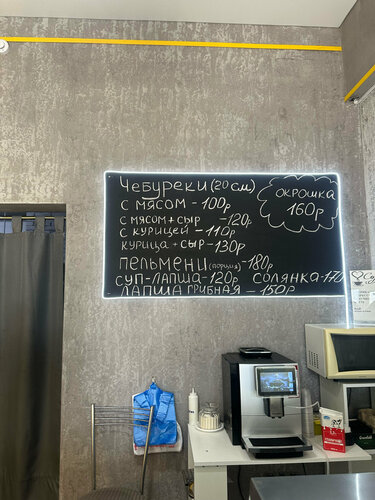 Чебуреки (20 см)
с мясом - 100р
с мясом + сыр - 120р
с курицей - 110р
курица + сыр - 130р
пельмени (порция) - 180р
суп-лапша - 120р солянка - 170
лапша грибная - 150р
окрошка
160р